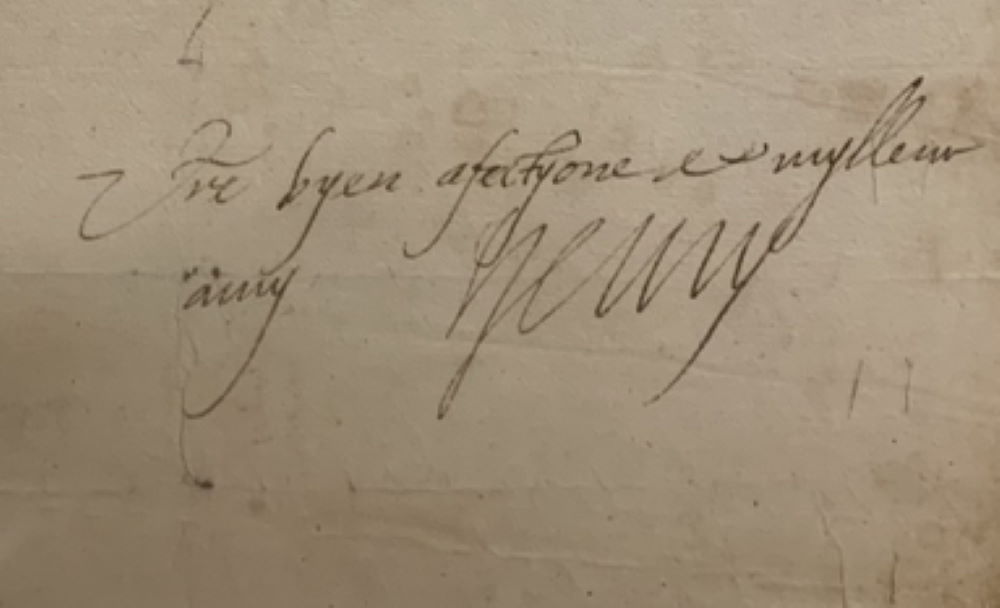 Vre byen afectyone e mylleur
amy Henry